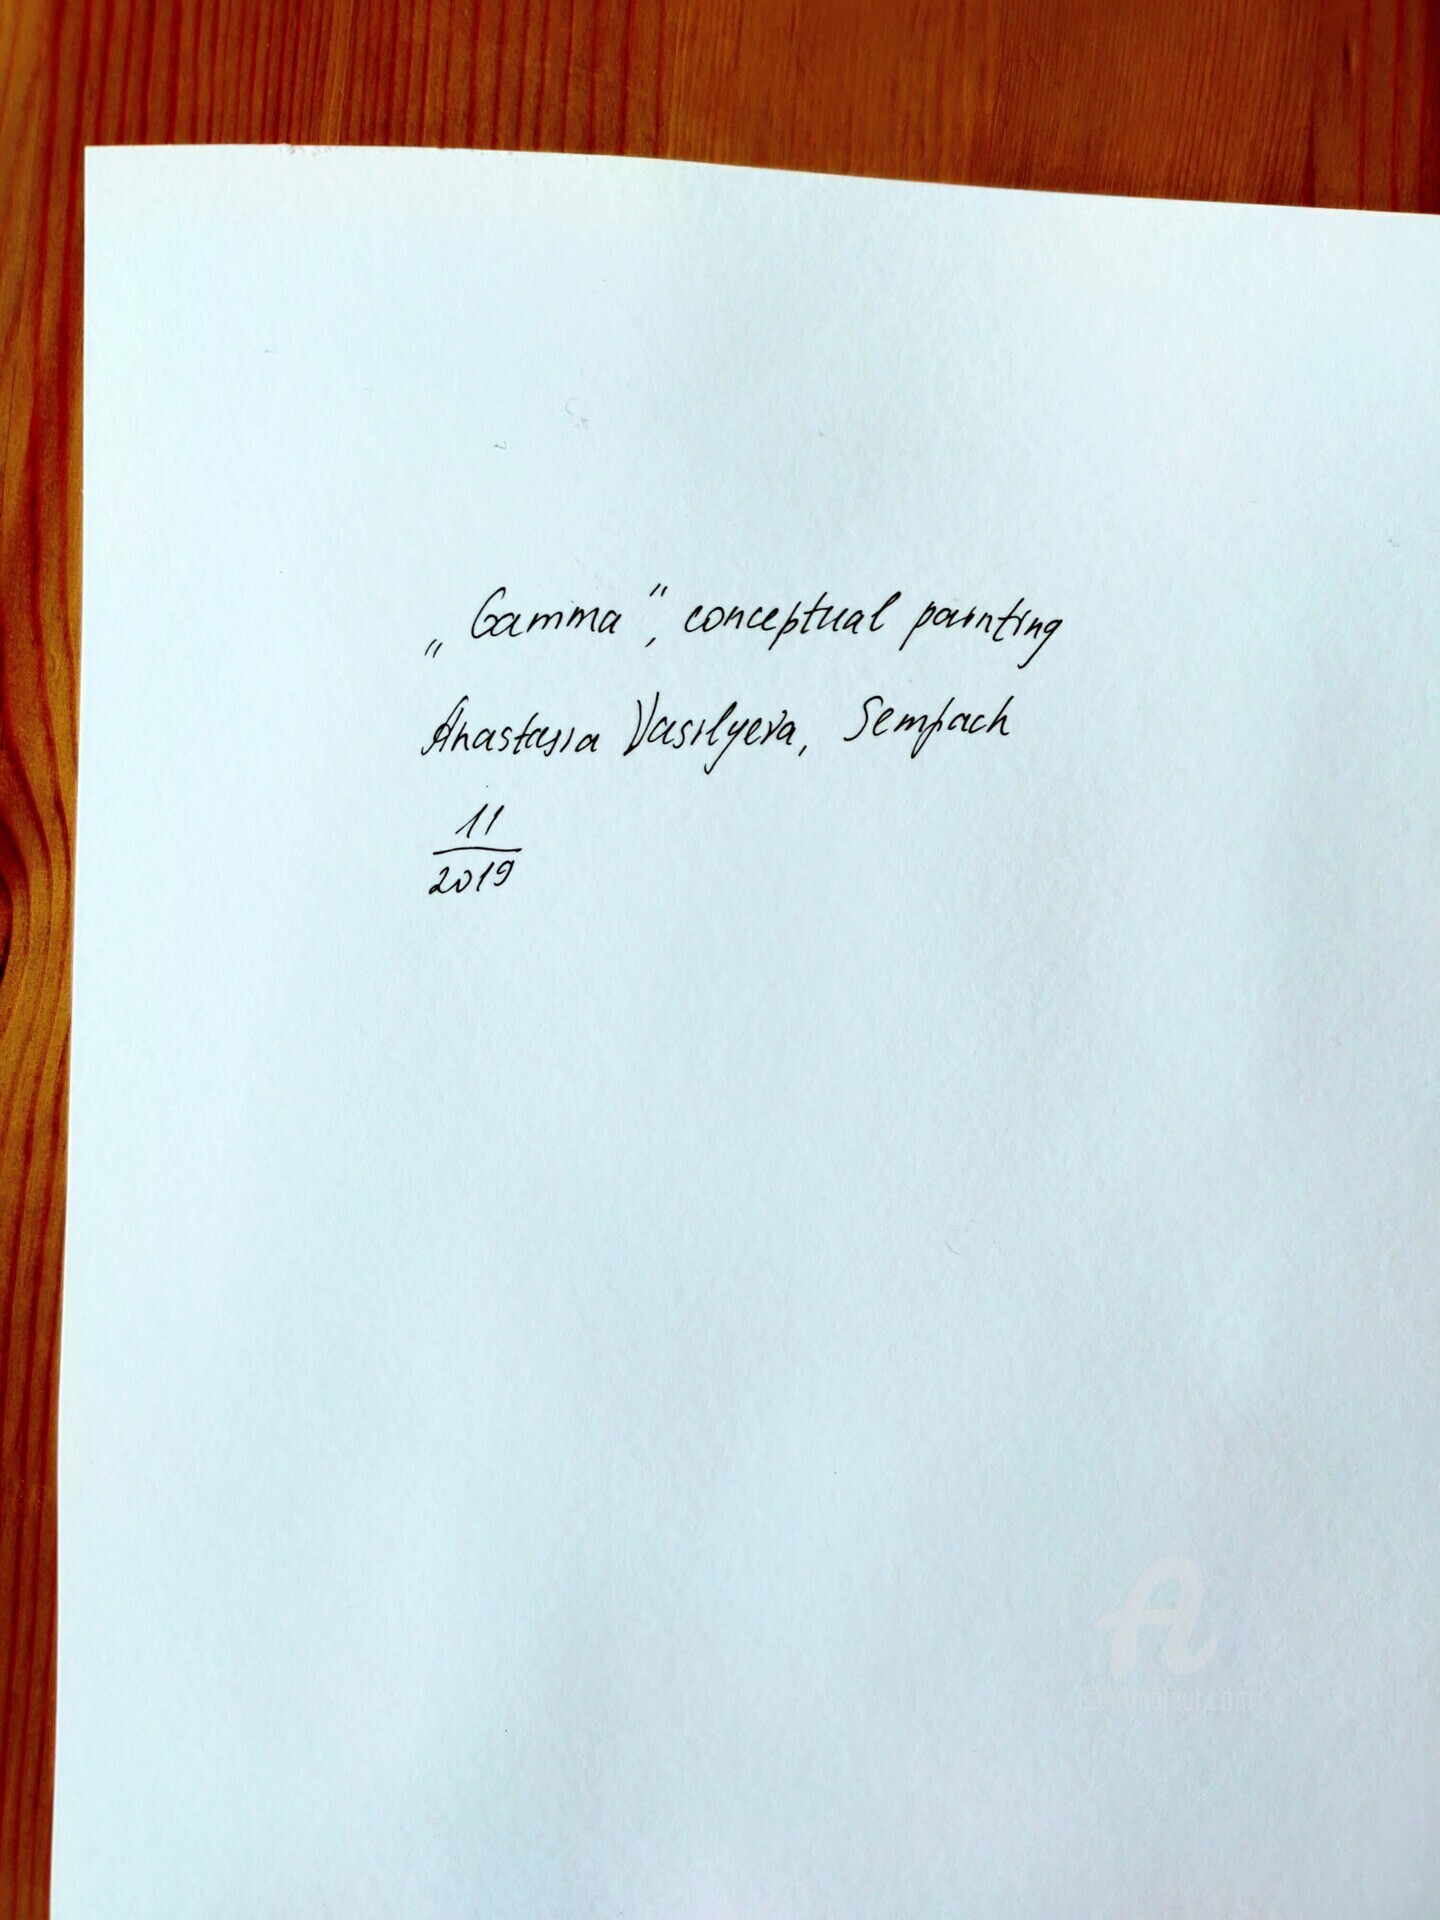 „Gamma“, conceptual painting
Anastasia Vasilyeva, Sempach
11
2019